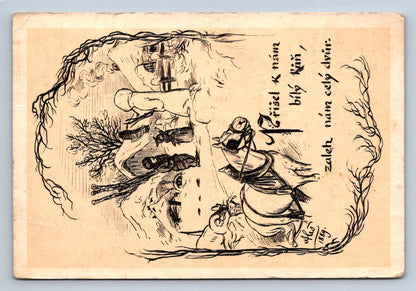 Přišel k nám
bílý kůň,
zaleh nám celý dvůr.